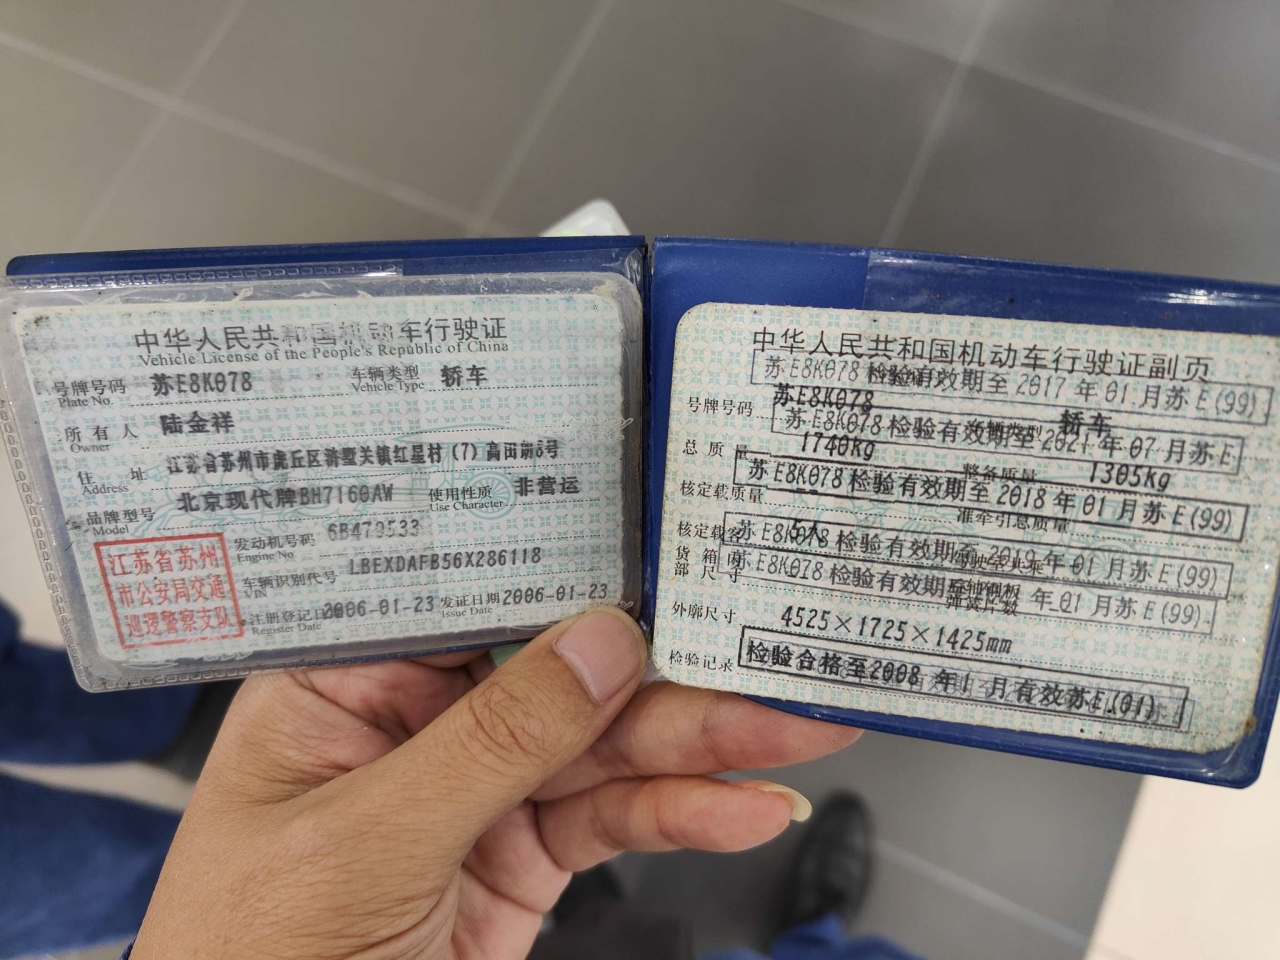 中华人民共和国机动车行驶证
Vehicle License of the People's Republic of China
号牌号码 苏E8K078 车辆类型 轿车
Plate No. Vehicle Type
所有人 陆金祥
Owner
住址 江苏省苏州市虎丘区浒墅关镇红星村(7)高田前8号
Address
品牌型号 北京现代牌BH7160AW 使用性质 非营运
Model Use Character
发动机号码 6B479533
Engine No.
车辆识别代号 LBEXDAFB56X286118
VIN
注册登记日 2006-01-23 发证日期 2006-01-23
Register Date Issue Date
江苏省苏州
市公安局交通
巡逻警察支队
中华人民共和国机动车行驶证副页
苏E8K078 检验有效期至 2017 年 01 月苏E(99)
号牌号码 苏E8K078 轿车
苏E8K078 检验有效期至 2021 年 07 月苏E
总质量 1740kg 整备质量 1305kg
苏E8K078 检验有效期至 2018 年 01 月苏E(99)
核定载质量 准牵引总质量
核定载客 5人
苏E8K078 检验有效期至 2019 年 01 月苏E(99)
货箱内
部尺寸
苏E8K078 检验有效期 年 01 月苏E(99)
外廓尺寸 4525×1725×1425mm
检验记录 检验合格至2008 年1 月有效苏E.(01)